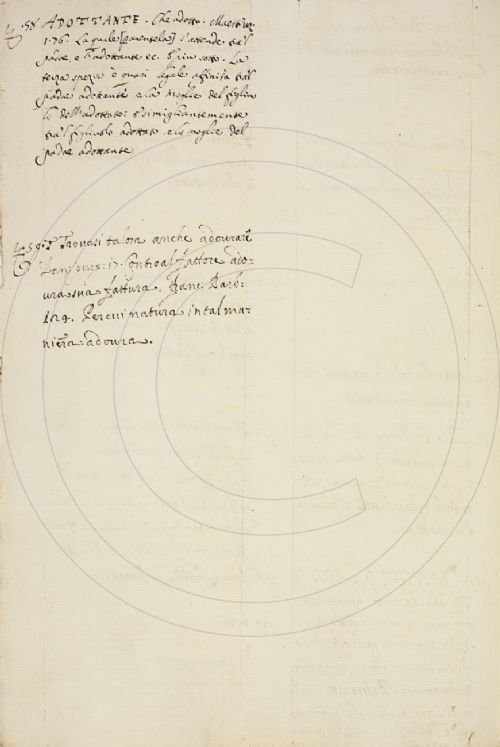 58 ADOTTANTE. Che adotta. Maestruz.
1. 76. La quale [parentela] s'attende tra 'l
padre, e l'adottante ec. E più sotto. La
terza spezie è quasi legale affinità tra 'l
padre adottante, e la moglie del figliuo
lo dell'adottato: e simigliantemente
tra 'l figliuolo adottato, e la moglie del
padre adottante
59. Trovasi talora anche adourare
17. Contro al fattore ado-
ura sua fattura. Franc. Barb.
Per cui natura in tal ma-
niera adoura.